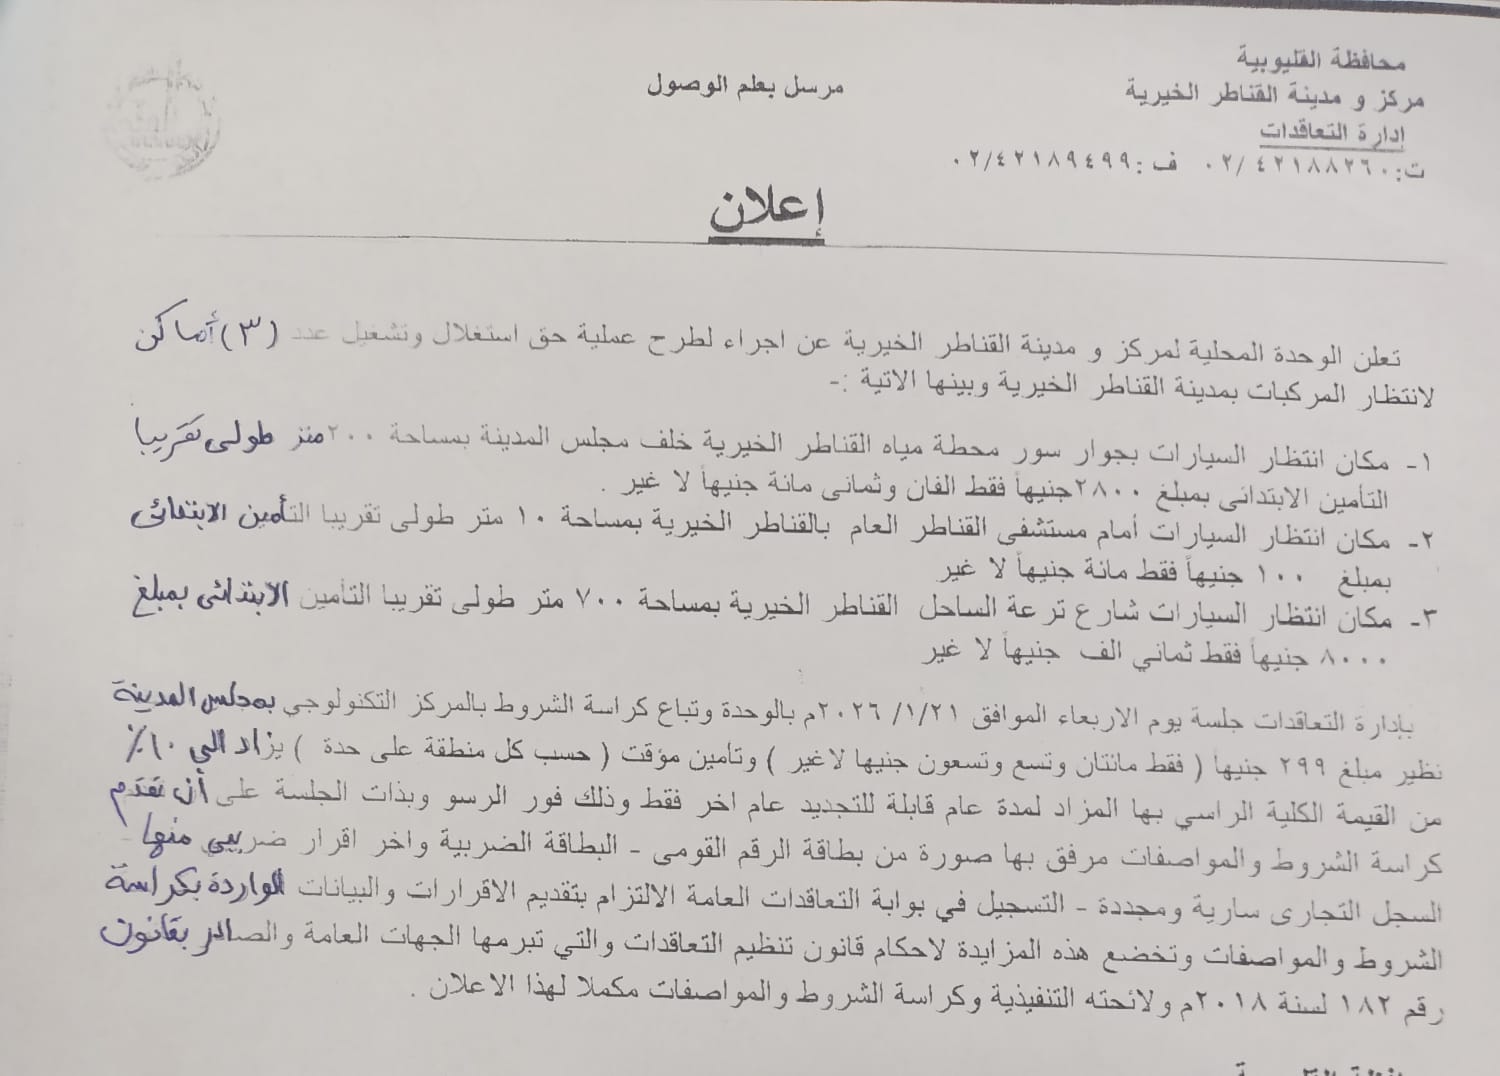 محافظة القليوبية
مركز و مدينة القناطر الخيرية
إدارة التعاقدات
ت: ٠٢/٤٢١٨٨٢٦٠ ف: ٠٢/٤٢١٨٩٤٩٩
مرسل بعلم الوصول
إعلان
تعلن الوحدة المحلية لمركز و مدينة القناطر الخيرية عن اجراء لطرح عملية حق استغلال وتشغيل عدد (٣) أماكن
لانتظار المركبات بمدينة القناطر الخيرية وبينها الاتية :-
١- مكان انتظار السيارات بجوار سور محطة مياه القناطر الخيرية خلف مجلس المدينة بمساحة ٢٠٠ متر طولى تقريبا
التأمين الابتدائى بمبلغ ٢٨٠٠جنيهاً فقط الفان وثمانى مائة جنيهاً لا غير .
٢- مكان انتظار السيارات أمام مستشفى القناطر العام بالقناطر الخيرية بمساحة ١٠ متر طولى تقريبا التأمين الابتدائى
بمبلغ ١٠٠ جنيهاً فقط مائة جنيهاً لا غير
٣- مكان انتظار السيارات شارع ترعة الساحل القناطر الخيرية بمساحة ٧٠٠ متر طولى تقريبا التأمين الابتدائى بمبلغ
٨٠٠٠ جنيهاً فقط ثماني الف جنيهاً لا غير
بإدارة التعاقدات جلسة يوم الاربعاء الموافق ٢٠٢٦/١/٢١م بالوحدة وتباع كراسة الشروط بالمركز التكنولوجي بمجلس المدينة
نظير مبلغ ٢٩٩ جنيها ( فقط مائتان وتسع وتسعون جنيها لاغير ) وتأمين مؤقت ( حسب كل منطقة على حدة ) يزاد الي ١٠٪
من القيمة الكلية الراسي بها المزاد لمدة عام قابلة للتجديد عام اخر فقط وذلك فور الرسو وبذات الجلسة على أن تقدم
كراسة الشروط والمواصفات مرفق بها صورة من بطاقة الرقم القومى - البطاقة الضربية واخر اقرار ضريبي منها
السجل التجارى سارية ومجددة - التسجيل في بوابة التعاقدات العامة الالتزام بتقديم الاقرارات والبيانات الواردة بكراسة
الشروط والمواصفات وتخضع هذه المزايدة لاحكام قانون تنظيم التعاقدات والتي تبرمها الجهات العامة والصادر بقانون
رقم ١٨٢ لسنة ٢٠١٨م ولائحته التنفيذية وكراسة الشروط والمواصفات مكملا لهذا الاعلان .